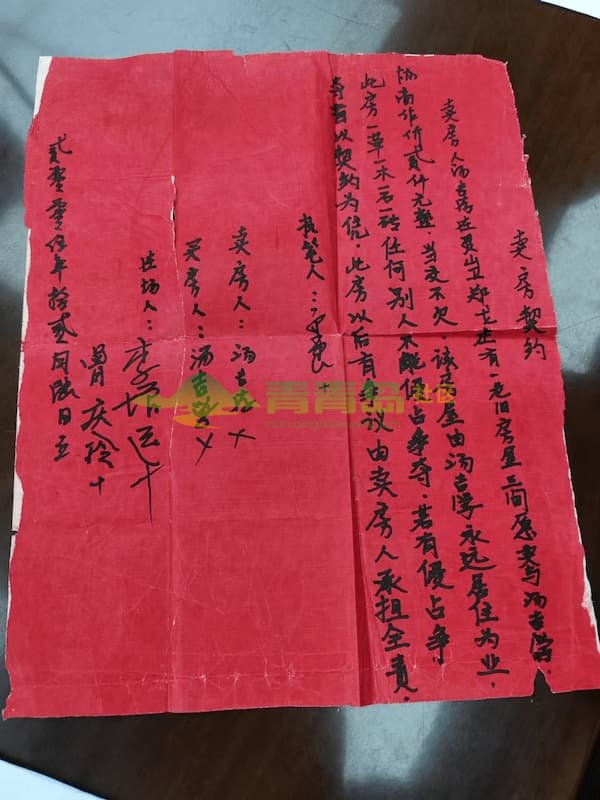 卖房契约
卖房人汤吉 在灵山卫郑 庄有一老旧房屋三间愿卖与汤吉学，
协商作价贰仟元整，当交不欠，该房屋由汤吉学永远居住为业，
此房一草一木一石一砖任何别人不能侵占争夺，若有侵占争
夺者以契约为凭，此房以后有 由卖房人承担全责，
执笔人：
卖房人：汤吉 ×
买房人：汤吉学 ×
在场人：李 运十
庆 十
贰零零 年拾贰月 日立
青青岛社区
club.qingdaonews.com